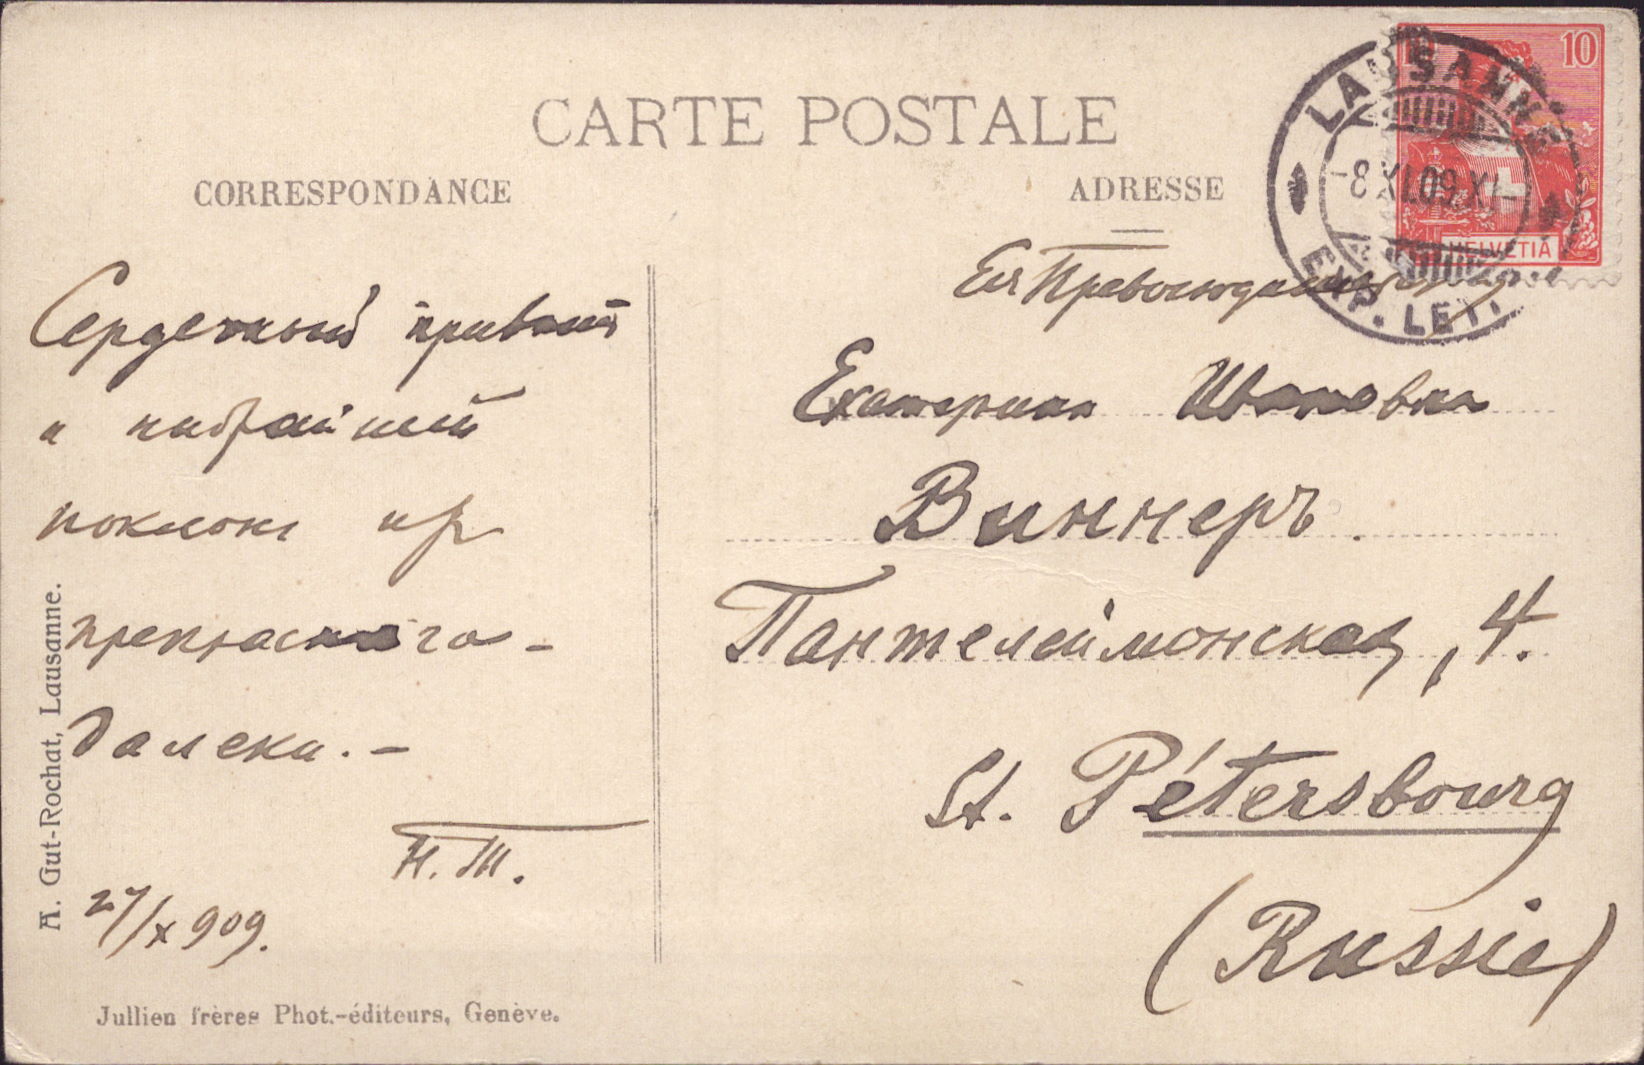 CARTE POSTALE
CORRESPONDANCE
ADRESSE
10
HELVETIA
LAUSANNE
-8.XI.09.XI-
EXP. LET.
Сердечный привѣтъ
и нижайшій
поклонъ изъ
прекраснаго -
далека. -
Н.Т.
27/X 909.
Ея Превосходительству
Екатеринѣ Ивановнѣ
Виннеръ.
Пантелеймонская, 4.
St. Pétersbourg
(Russie)
A. Gut-Rochat, Lausanne.
Jullien frères Phot.-éditeurs, Genève.